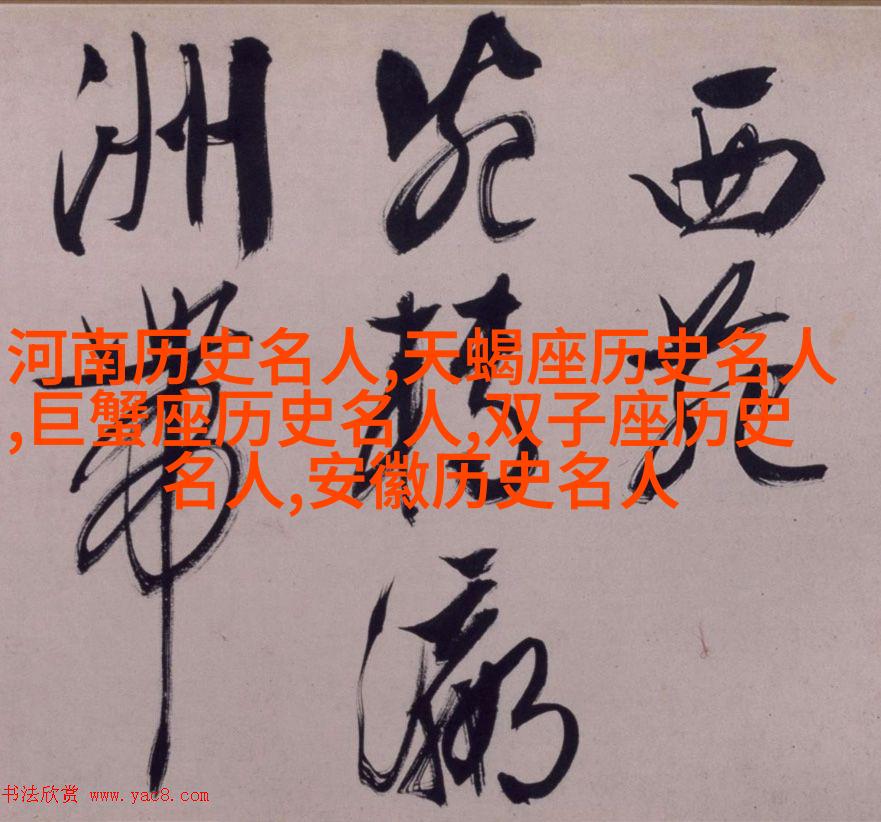 西苑
瀛
洲帶
河南历史名人,天蝎座历史名人
,巨蟹座历史名人,双子座历史
名人,安徽历史名人
书法欣赏 www.yac8.com